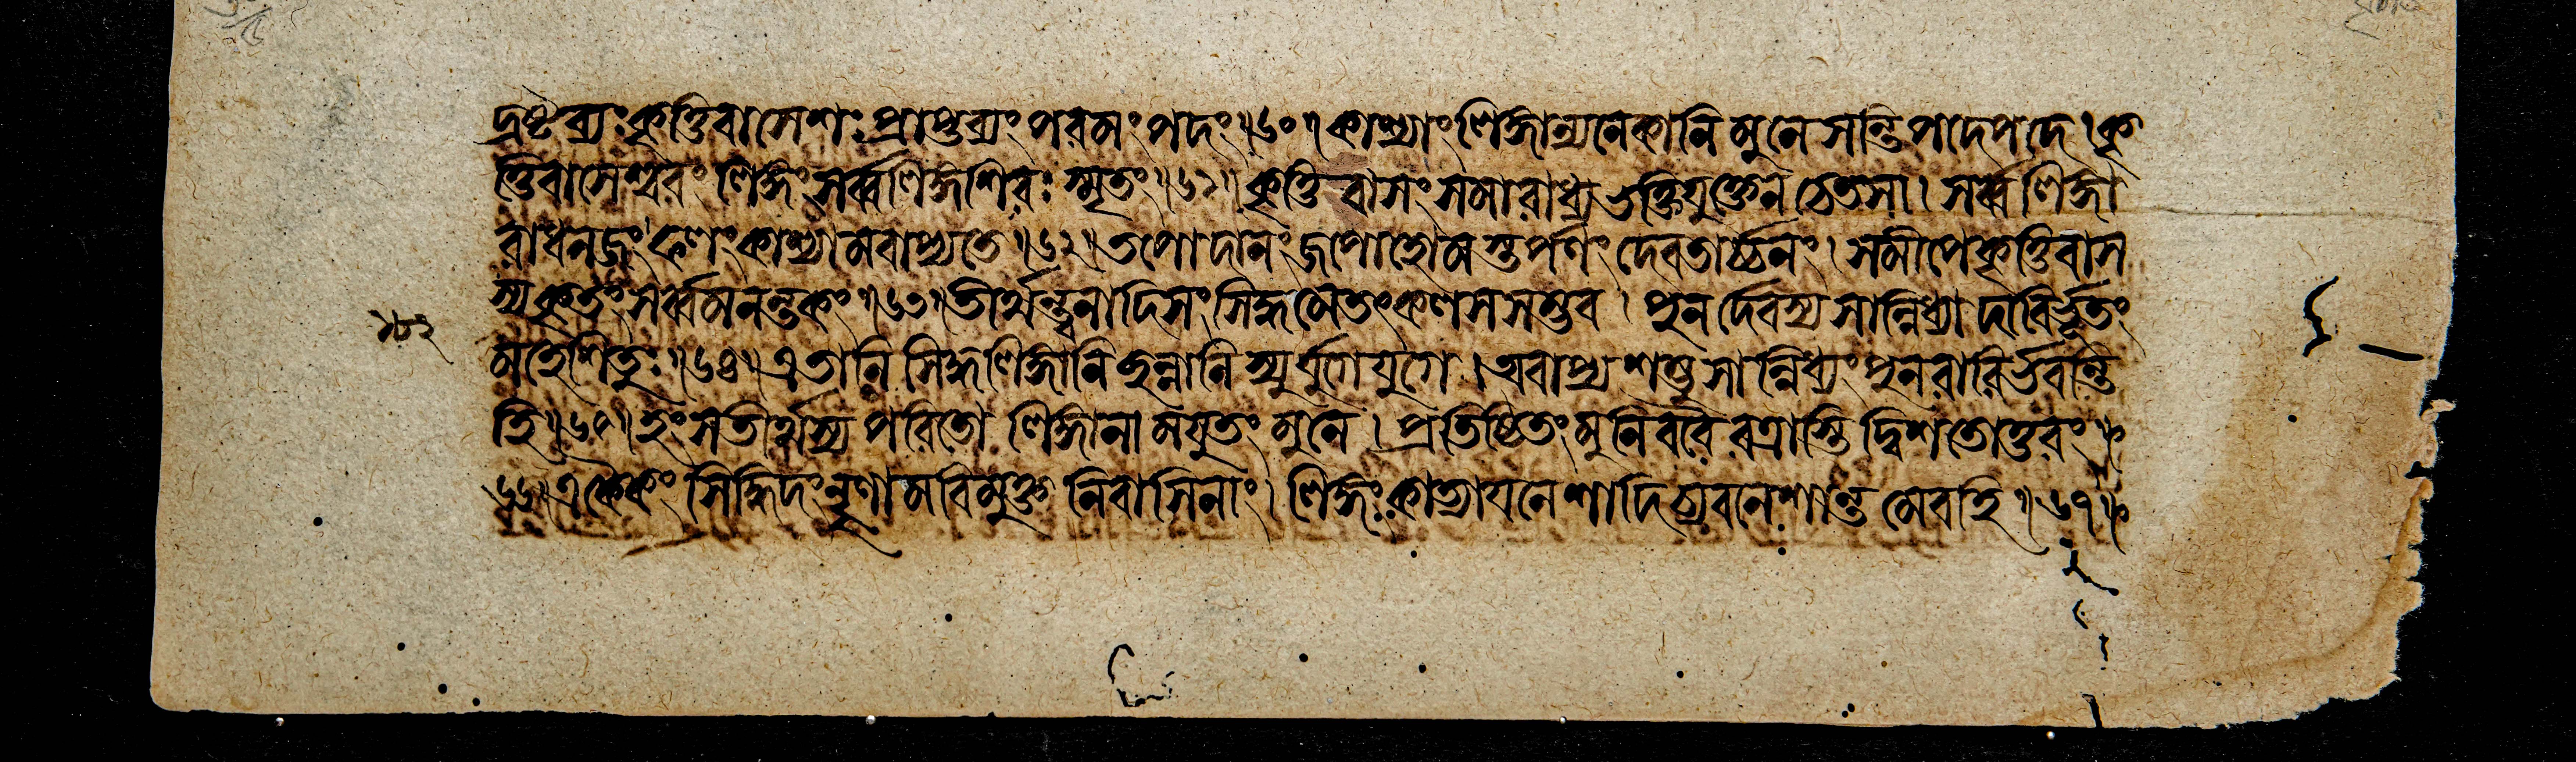 দ্রষ্টব্যঃ কৃত্তিবাসেশঃ প্রাপ্তব্যং পরমং পদং ॥ ৬০ ॥ কাশ্যাং লিঙ্গান্যনেকানি মুনে সন্তি পদে পদে । কৃ
ত্তিবাসেশ্বরং লিঙ্গং সর্ব্বলিঙ্গশিরঃ স্মৃতং ॥ ৬১ ॥ কৃত্তিবাসং সমারাধ্য ভক্তিযুক্তেন চেতসা । সর্ব্বলিঙ্গা
রাধনজং ফলং কাশ্যামবাপ্যতে ॥ ৬২ ॥ তপোদানং জপোহোমস্তর্পণং দেবতার্চ্চনং । সমীপে কৃত্তিবাস
স্য কৃতং সর্ব্বমনন্তকং ॥ ৬৩ ॥ তীর্থন্ত্বনাদিসংসিদ্ধমেতৎ কলসসম্ভব । পুনর্দেবস্য সান্নিধ্যাদাবির্ভূতং
মহেশিতুঃ ॥ ৬৪ ॥ এতানি সিদ্ধলিঙ্গানি ছন্নানি স্যুর্যুগে যুগে । অবাপ্য শম্ভুসান্নিধ্যং পুনরাবির্ভবন্তি
হি ॥ ৬৫ ॥ হংসতীর্থস্য পরিতো লিঙ্গানামযুতং মুনে । প্রতিষ্ঠিতং মুনিবরৈরত্রাস্তি দ্বিশতোত্তরং ॥
৬৬ ॥ একৈকং সিদ্ধিদং নৄণামবিমুক্তনিবাসিনাং । লিঙ্গং কাত্যায়নেশাদি চ্যবনেশান্তমেব হি ॥ ৬৭ ॥
১৮২